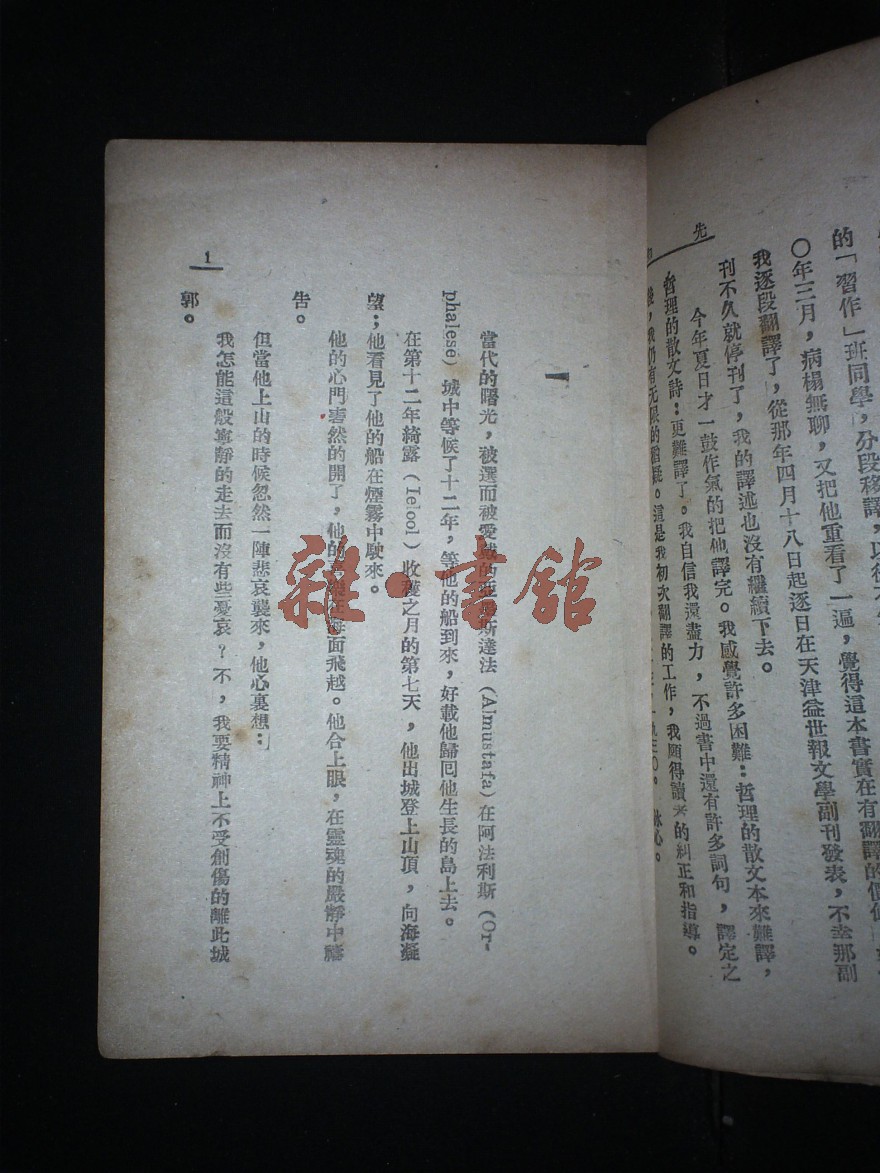 的「習作」班同學，分段移譯，以後
〇年三月，病榻無聊，又把他重看了一遍，覺得這本書實在有翻譯的價值，
我逐段翻譯了，從那年四月十八日起逐日在天津益世報文學副刊發表，不幸那副
刊不久就停刊了，我的譯述也沒有繼續下去。
今年夏日才一鼓作氣的把他譯完。我感覺許多困難：哲理的散文本來難譯，
哲理的散文詩：更難譯了。我自信我還盡力，不過書中還有許多詞句，譯定之
後，我仍有无限的猶疑。這是我初次翻譯的工作，我願得讀 的糾正和指導。
一九三〇。 冰心。
先
一
當代的曙光，被選而被愛戴的亞墨斯達法（Almustafa）在阿法利斯（Or-
phalese）城中等候了十二年，等他的船到來，好載他歸回他生長的島上去。
在第十二年綺露（Ielool）收穫之月的第七天，他出城登上山頂，向海凝
望；他看見了他的船在煙霧中駛來。
他的心門砉然的開了，他的喜樂在海面飛越。他合上眼，在靈魂的嚴靜中禱
告。
但當他上山的時候忽然一陣悲哀襲來，他心裏想：
我怎能這般寧靜的走去而沒有些憂哀？不，我要精神上不受創傷的離此城
郭。
1
雜·書館